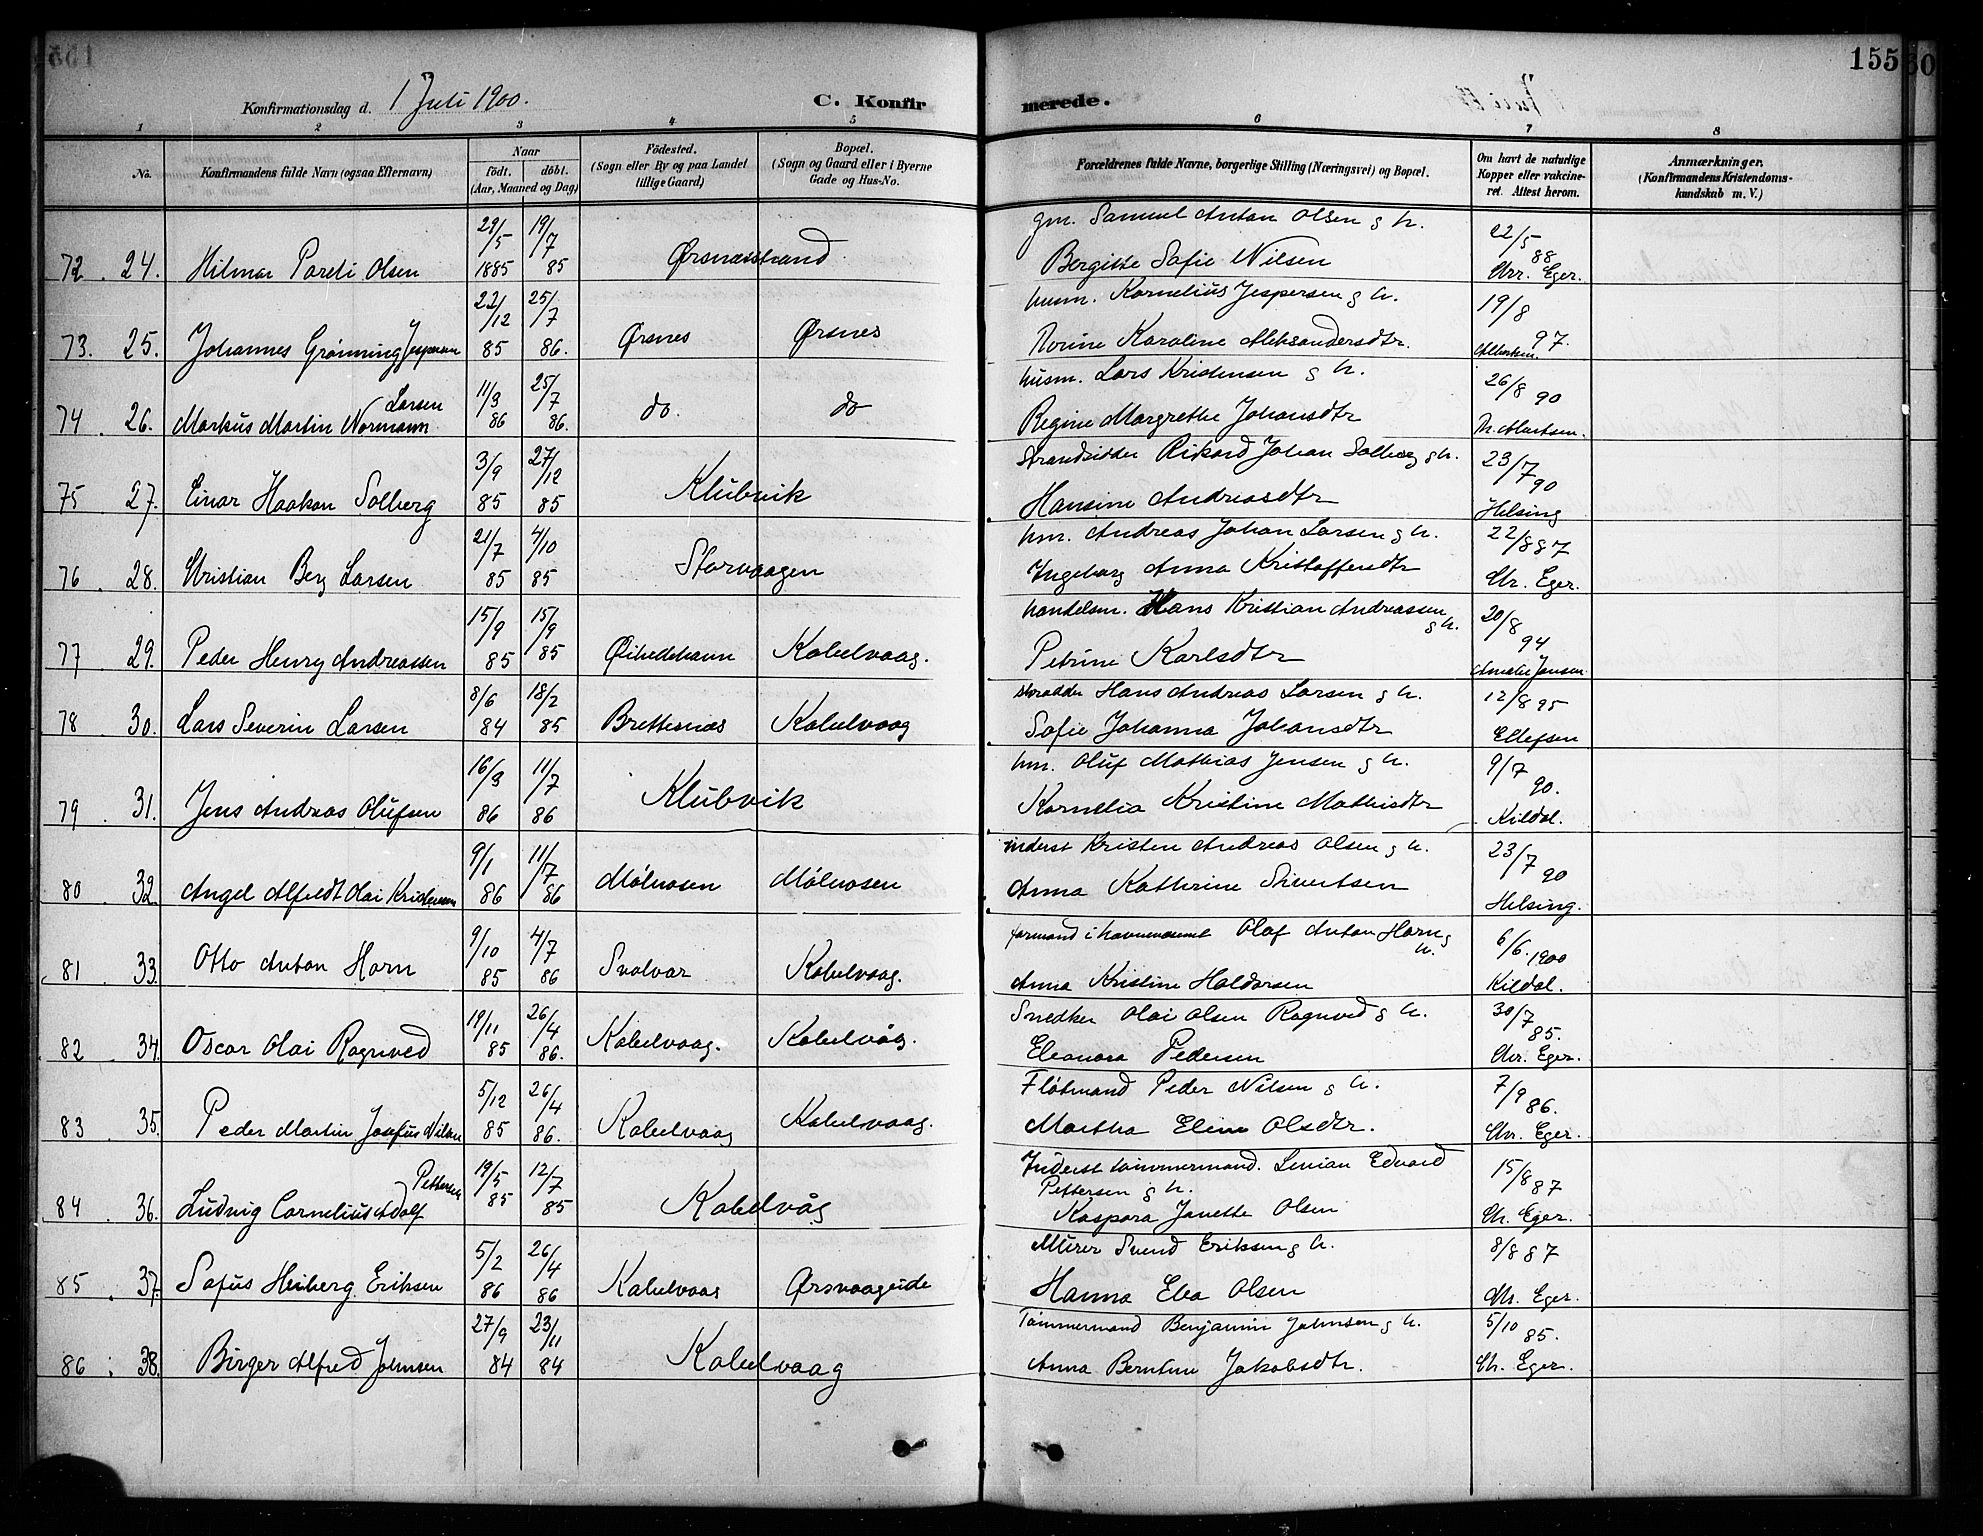 155
Konfirmationsdag d. 1 Juli 1900.
C. Konfirmerede.
1 2 3 4 5 6 7 8
No.
Konfirmandens fulde Navn (ogsaa Efternavn)
Naar
født. døbt.
(Aar, Maaned og Dag)
Fødested.
(Sogn eller By og paa Landet
tillige Gaard)
Bopæl.
(Sogn og Gaard eller i Byerne
Gade og Hus-No.
Forældrenes fulde Navne, borgerlige Stilling (Næringsvei) og Bopæl.
Om havt de naturlige
Kopper eller vakcine-
ret. Attest herom.
Anmærkninger.
(Konfirmandens Kristendoms-
kundskab m. V.)
72. 24. Hilmar Pareli Olsen 29/5 1885 19/7 85 Ørsnesstrand
gm. Samuel Anton Olsen g h.
Bergitte Sofie Nilsen 22/5 88 Chr. Eger.
73. 25. Johannes Grønning Jespersen 22/12 85 25/7 86. Ørsnes Ørsnes
husm. Kornelius Jespersen g h.
Norine Karoline Aleksandersdtr. 19/8 97.
74. 26. Markus Martin Normann Larsen 11/3 86 25/7 86. do. do
husm. Lars Kristensen g h.
Regine Margrethe Johansdtr 26/8 90
75 27. Einar Haakon Solberg 3/9 85 27/12 85 Klubvik
Strandsidder Rikard Johan Solberg g h.
Hansine Andreasdtr 23/7 90 Helsing
76. 28. Kristian Berg Larsen 21/7 85 4/10 85 Storvaagen
hm. Andreas Johan Larsen g h.
Ingeborg Anna Kristoffersdtr 22/8 87 Chr. Eger.
77 29. Peder Henry Andreassen 15/9 85 15/9 85 Kabelvaag.
handelsm. Hans Kristian Andreassen g h.
Petrine Karlsdtr 20/8 94 Amalie Jansen
78 30. Lars Severin Larsen 8/6 84 18/2 85 Brettesnæs Kabelvaag
skrædder Hans Andreas Larsen g h.
Sofie Johanna Johansdtr 12/8 95 Ellefsen
79. 31. Jens Andreas Olufsen 16/3 86 11/7 86 Klubvik
hm. Oluf Mathias Jensen g h.
Kornelia Kristine Mathisdtr 9/7 90. Kildal.
80. 32. Angel Alfredt Olai Kristensen 9/1 86 11/7 86 Mølnosen Mølnosen
inderst Kristen Andreas Olsen g h.
Anna Kathrine Sivertsen 23/7 90 Helsing.
81. 33. Otto Anton Horn 9/10 85 4/7 86 Svolvær Kabelvaag.
formand i havnevæsenet Olaf Anton Horn g h.
Anna Kristine Haldorsen 6/6 1900 Kildal.
82. 34. Oscar Olai Ragnved 19/11 85 26/4 86. Kabelvaag. Kabelvåg.
Snedker Olai Olsen Ragnved g h.
Eleonora Pedersen 30/7 85. Chr. Eger.
83. 35. Peder Martin Josefus Nilsen 5/12 85 26/4 86. Kabelvaag Kabelvaag.
Fløtmand Peder Nilsen g h.
Martha Eline Olsdtr. 7/9 86. Chr. Eger.
84. 36. Ludvig Cornelius Adolf Pettersen 19/5 85 12/7 85 Kabelvåg
Inderst tømmermand. Edvard
Pettersen g h.
Kaspara Janette Olsen 15/8 87 Ch. Eger.
85. 37. Sofus Heiberg Eriksen 5/2 86 26/4 86 Kabelvaag Ørsvaageide
Murer Svend Eriksen g h.
Hanna Eba Olsen 8/8 87 Chr. Eger.
86. 38. Birger Alfred Johnsen 27/9 84 23/11 84 Kabelvaag
Tømmermand Benjamin Johnsen g h.
Anna Berntine Jakobsdtr. 5/10 85. Ch. Eger.